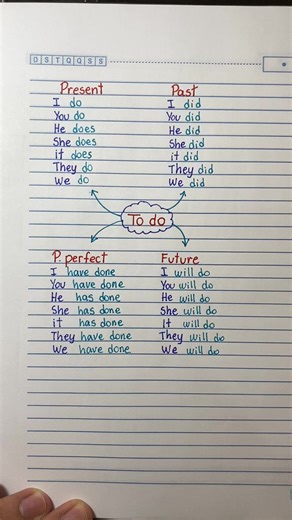 D S T Q Q S S
Present
I do
You do
He does
She does
it does
They do
We do
Past
I did
You did
He did
She did
it did
They did
We did
To do
P. perfect
I have done
You have done
He has done
She has done
it has done
They have done
We have done
Future
I will do
You will do
He will do
She will do
It will do
They will do
We will do